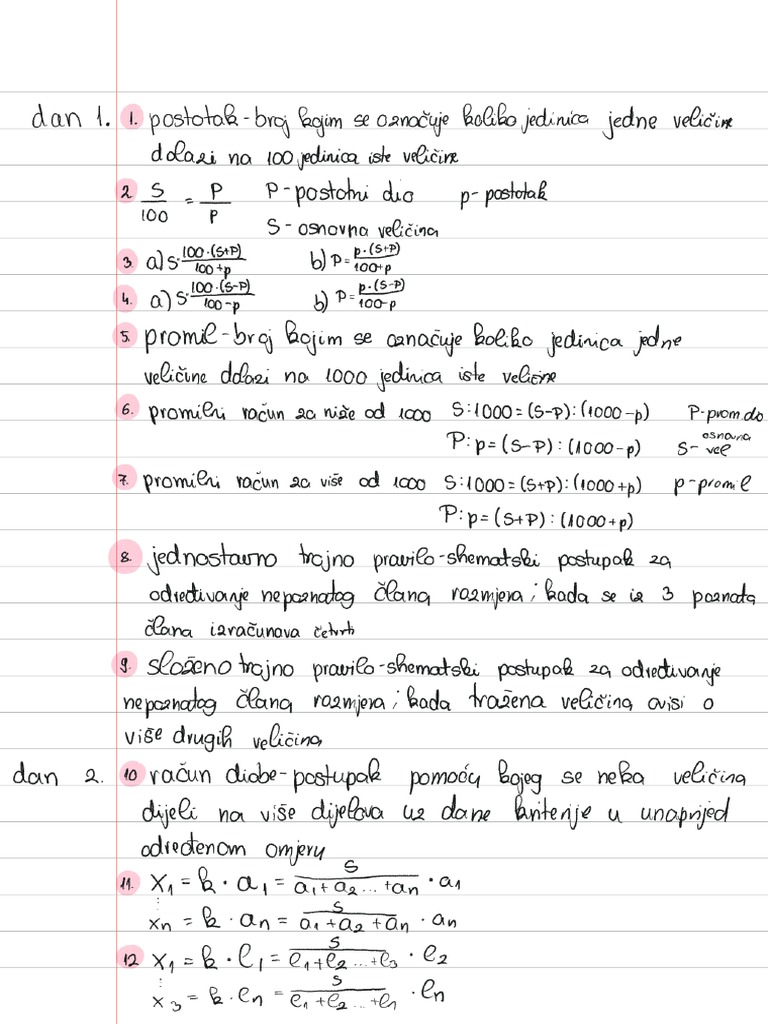 dan 1. 1. postotak - broj kojim se označuje koliko jedinica jedne veličine
dolazi na 100 jedinica iste veličine
2 S/100 = P/p P - postotni dio p - postotak
S - osnovna veličina
3. a) S = 100·(S+P)/100+p b) P = p·(S+P)/100+p
4. a) S = 100·(S-P)/100-p b) P = p·(S-P)/100-p
5. promil - broj kojim se označuje koliko jedinica jedne
veličine dolazi na 1000 jedinica iste veličine
6. promilni račun za niže od 1000 S:1000=(S-P):(1000-p) P-prom.dio
P:p=(S-P):(1000-p) S- osnovna vel
7. promilni račun za više od 1000 S:1000=(S+P):(1000+p) p-promil
P:p=(S+P):(1000+p)
8. jednostavno trojno pravilo - shematski postupak za
određivanje nepoznatog člana razmjera; kada se iz 3 poznata
člana izračunava četvrti
9. složeno trojno pravilo - shematski postupak za određivanje
nepoznatog člana razmjera; kada tražena veličina ovisi o
više drugih veličina
dan 2. 10 račun diobe - postupak pomoću kojeg se neka veličina
dijeli na više dijelova uz dane kriterije u unaprijed
određenom omjeru
11. x₁ = k · a₁ = S/a₁+a₂...+aₙ · a₁
⋮
xₙ = k · aₙ = S/a₁+a₂+aₙ · aₙ
12 x₁ = k · l₁ = S/l₁+l₂...+l₃ · l₂
⋮
x₃ = k · lₙ = S/l₁+l₂...+l₁ · lₙ